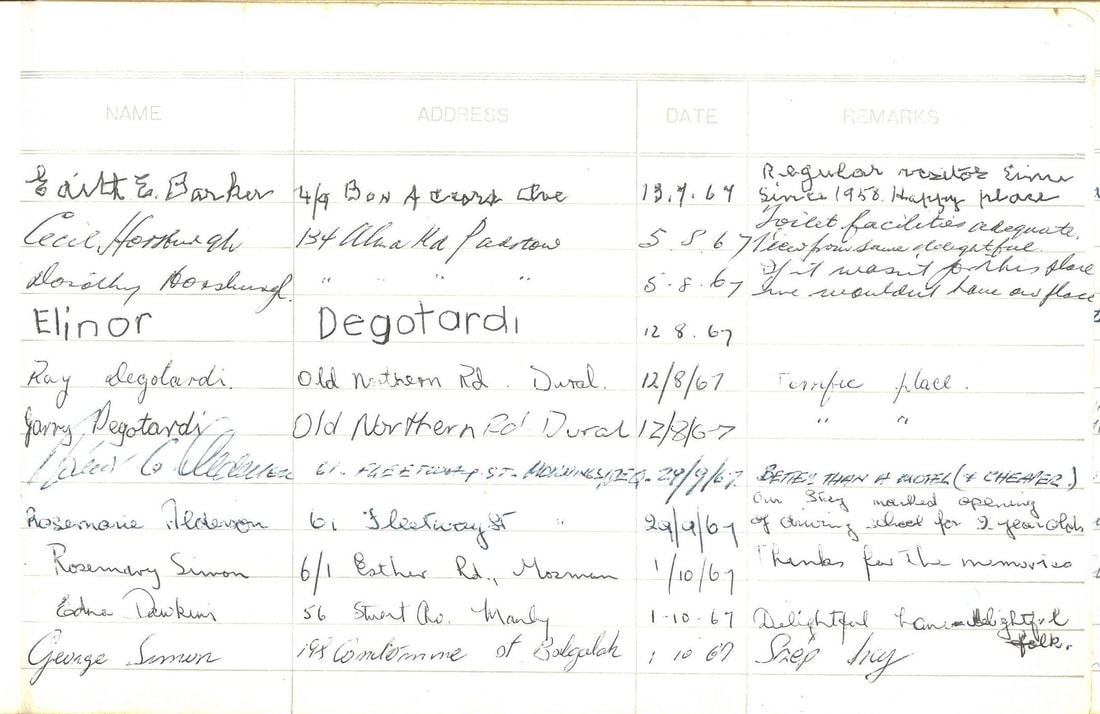 NAME ADDRESS DATE REMARKS
Edith E. Barker 4/9 Bon Accord Ave 13.7.67 Regular visitor
Since 1958. Happy place
Cecil Horsburgh 134 Alma Rd Padstow 5.8.67 Toilet facilities adequate.
View from same delightful.
Dorothy Horsburgh " " " 5.8.67 If it wasn't for this place
we wouldn't have our place
Elinor Degotardi 12 8.67
Ray Degotardi. Old Northern Rd. Dural. 12/8/67 Terrific place.
Garry Degotardi Old Northern Rd Dural 12/8/67 " "
61. FLEETWAY ST. MORNINGSIDE Q. 29/9/67 BETTER THAN A MOTEL (& CHEAPER.)
Rosemarie Alderson 61 Fleetway St " 29/9/67 Our stay marked opening
of driving school for 2 year olds
Rosemary Simon 6/1 Esther Rd., Mosman 1/10/67 Thanks for the memories
Edna Dawkins 56 Stuart Av. Manly 1-10-67 Delightful delightful
folk.
George Simon 198 of Balgalah 1 10 67 Szép